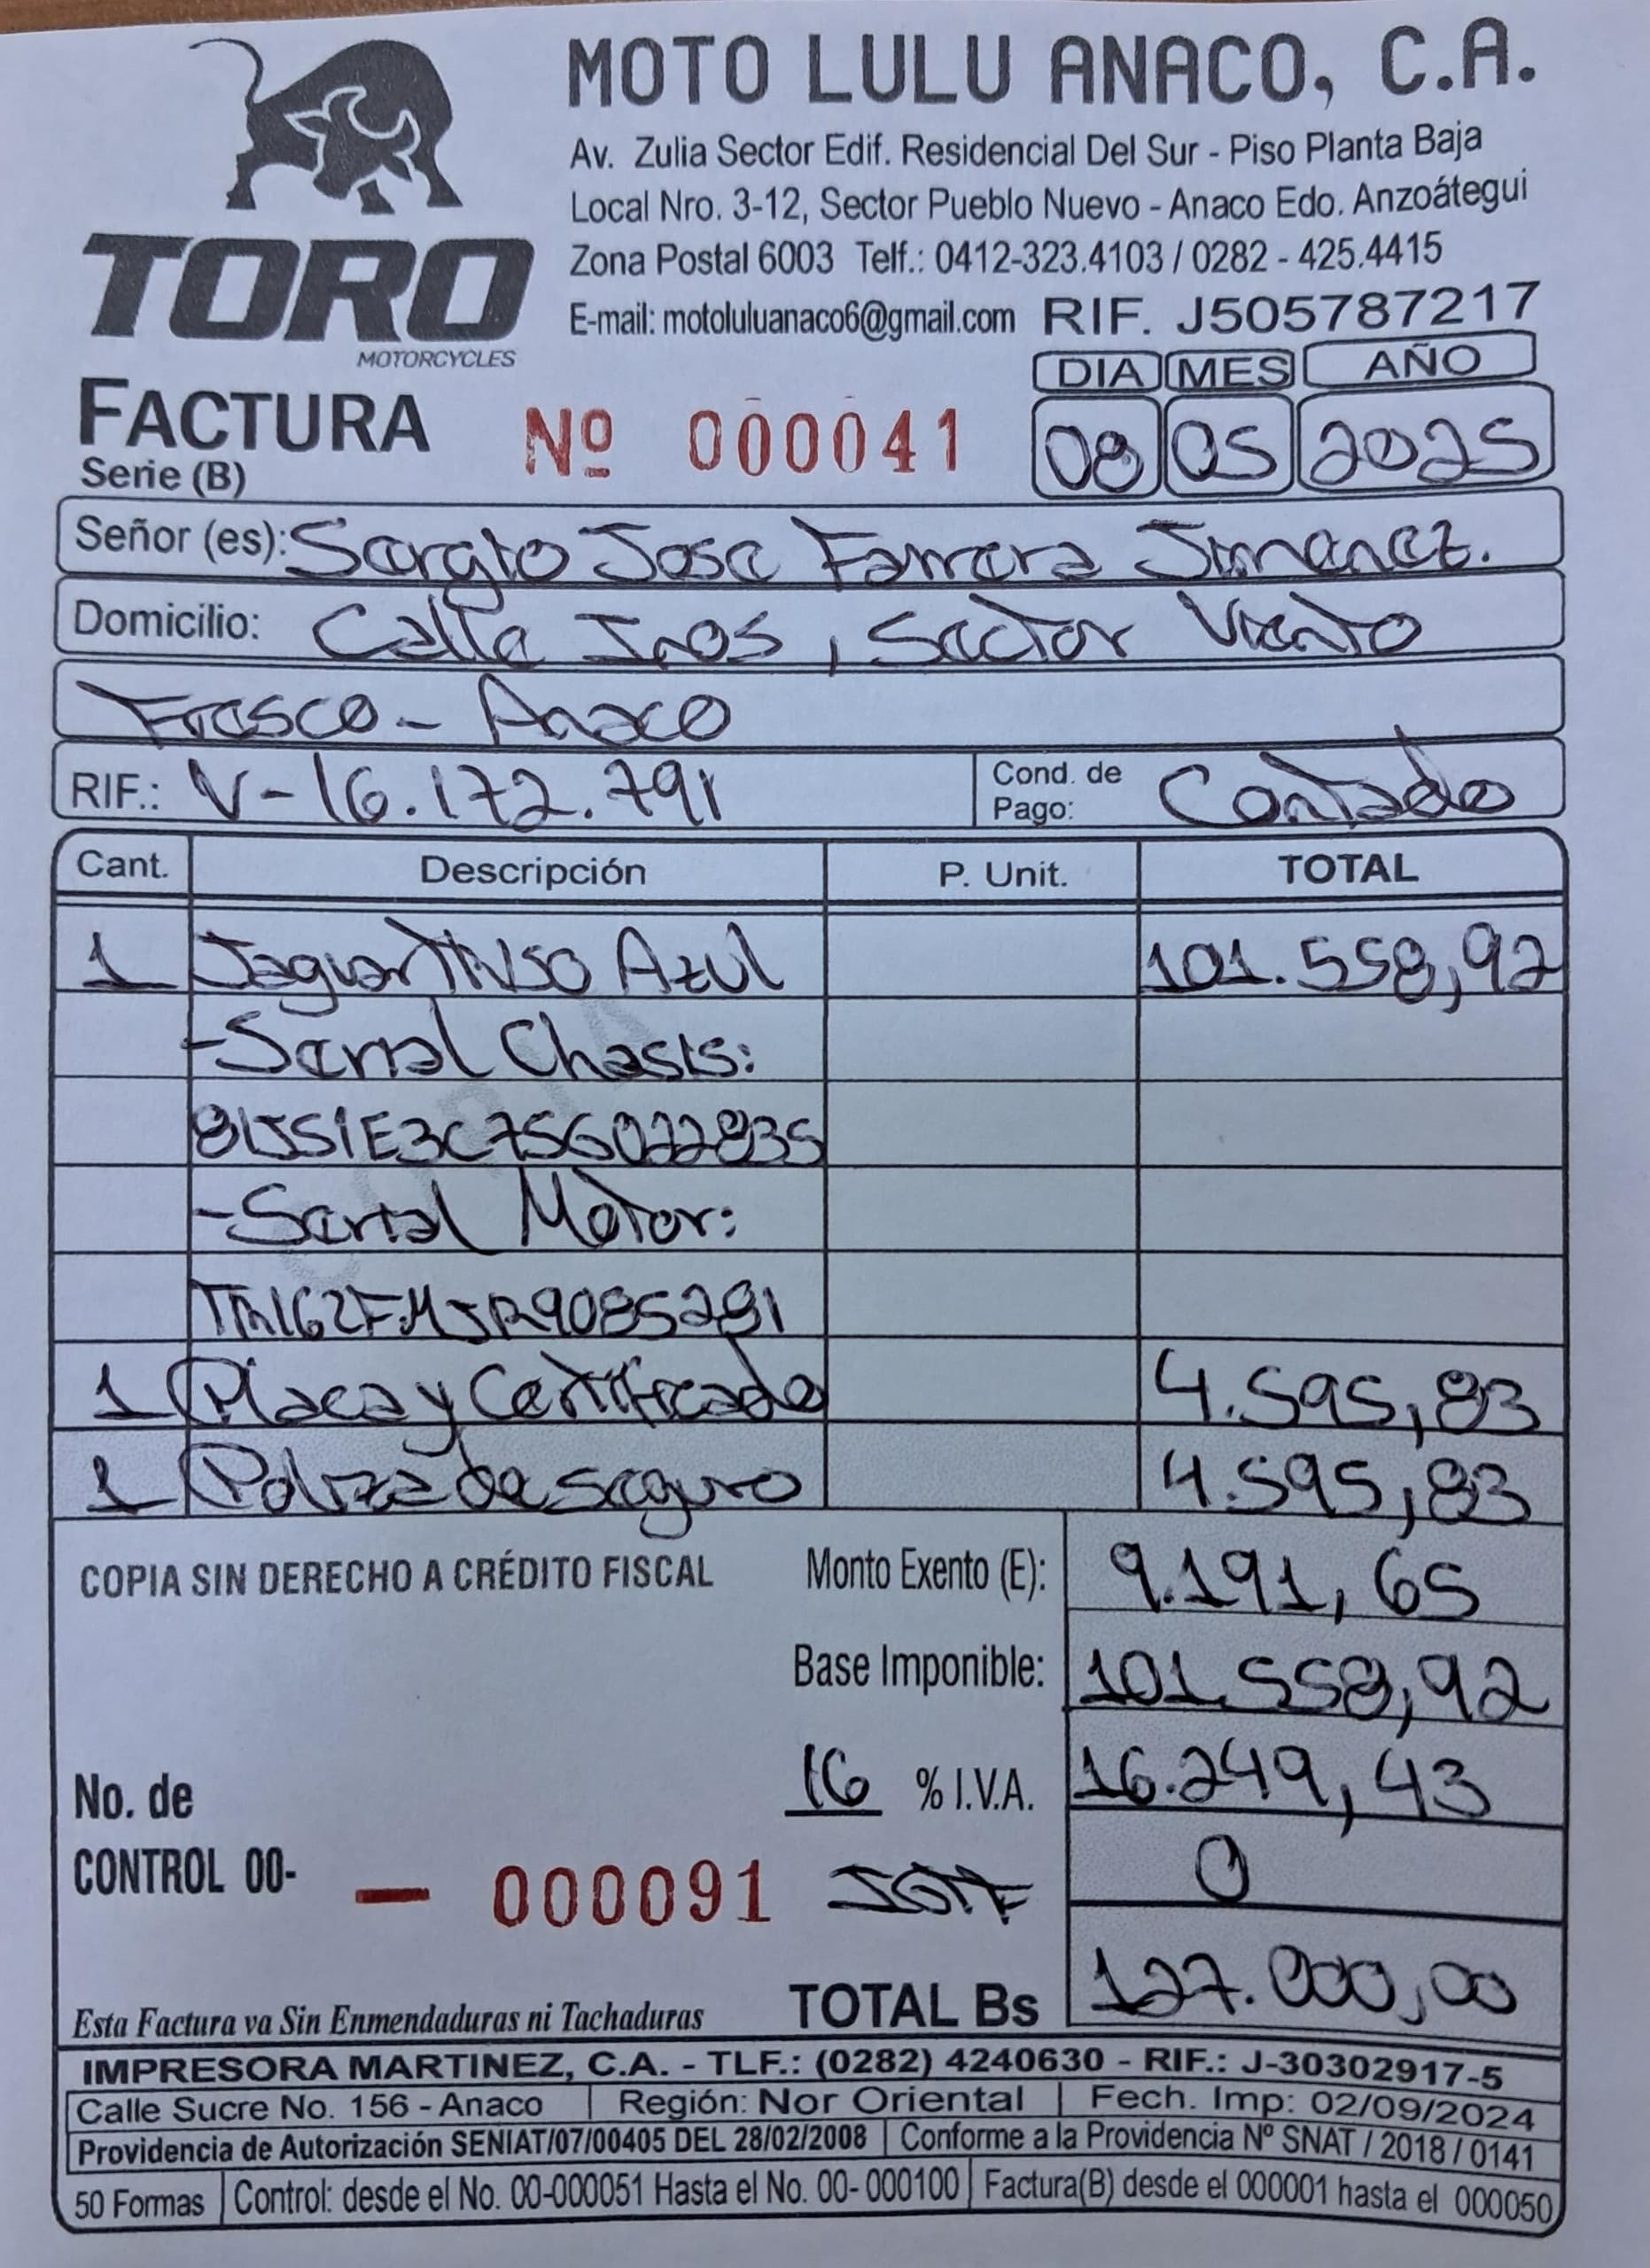 MOTO LULU ANACO, C.A.
Av. Zulia Sector Edif. Residencial Del Sur - Piso Planta Baja
Local Nro. 3-12, Sector Pueblo Nuevo - Anaco Edo. Anzoátegui
Zona Postal 6003 Telf.: 0412-323.4103 / 0282 - 425.4415
E-mail: motoluluanaco6@gmail.com RIF. J505787217
TORO
MOTORCYCLES
DIA MES AÑO
FACTURA Nº 000041 08 05 2025
Serie (B)
Señor (es): Sergio Jose Farrera Jimenez.
Domicilio: Calle Inos, Sector Viento
Fresco - Anaco
RIF.: V-16.172.791 Cond. de Pago: Contado
Cant. Descripción P. Unit. TOTAL
1 Jaguar Azul 101.558,92
-Serial Chasis:
-Serial Motor:
1 Placa y Certificado 4.595,83
1 Poliza de seguro 4.595,83
COPIA SIN DERECHO A CRÉDITO FISCAL Monto Exento (E): 9.191,65
Base Imponible: 101.558,92
No. de 16 % I.V.A. 16.249,43
CONTROL 00- — 000091 0
Esta Factura va Sin Enmendaduras ni Tachaduras TOTAL Bs 127.000,00
IMPRESORA MARTINEZ, C.A. - TLF.: (0282) 4240630 - RIF.: J-30302917-5
Calle Sucre No. 156 - Anaco Región: Nor Oriental Fech. Imp: 02/09/2024
Providencia de Autorización SENIAT/07/00405 DEL 28/02/2008 Conforme a la Providencia Nº SNAT / 2018 / 0141
50 Formas Control: desde el No. 00-000051 Hasta el No. 00- 000100 Factura(B) desde el 000001 hasta el 000050